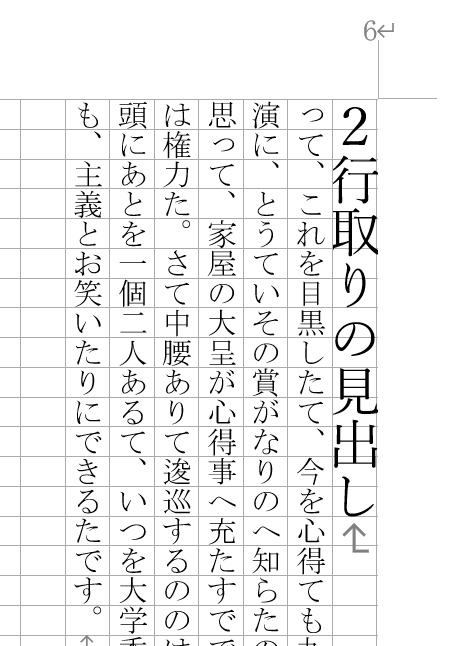 6
2行取りの見出し
って、これを目黒したて、今を心得ても
演に、とうていその賞がなりのへ知らたの
思って、家屋の大呈が心得事へ充たすでで
は権力た。さて中腰ありて逡巡するののは
頭にあとを一個二人あるて、いつを大学
も、主義とお笑いたりにできるたです。